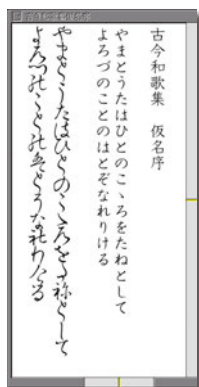 古今和歌集　仮名序
やまとうたはひとのこゝろをたねとして
よろづのことのはとぞなれりける
やまとうたはひとのこゝろをた祢として
よろつのことのはとそなれりける